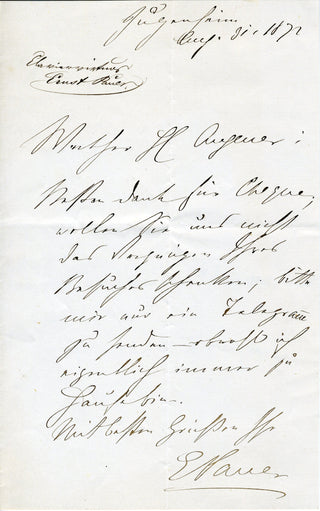 Jugenheim
Aug. 31. 1872
Claviervirtuos
Ernst Pauer.
Werther H Augener!
Besten Dank für Cheque,
wollen Sie uns nicht
das Vergnügen Ihres
Besuches schenken; bitte
mir nur ein Telegram
zu senden – obwohl ich
eigentlich immer zu
Hause bin.
Mit besten Grüßen Ihr
E Pauer